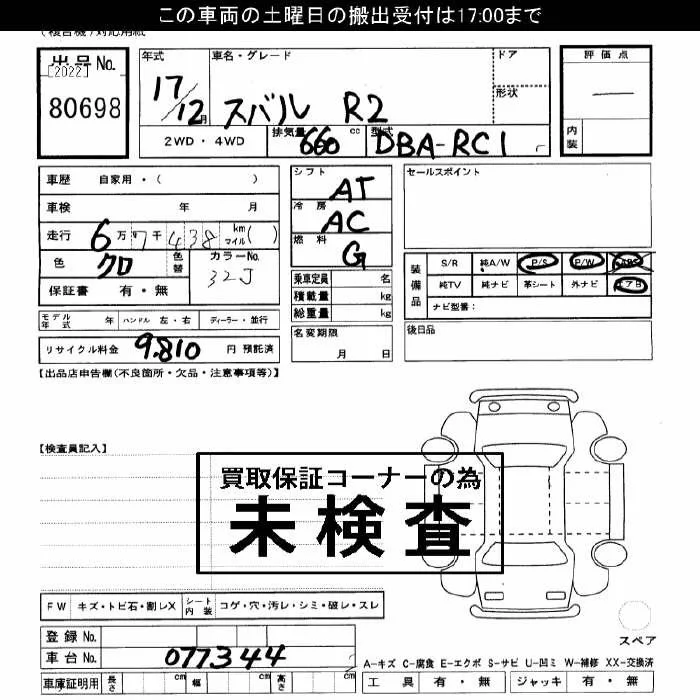 この車両の土曜日の搬出受付は17:00まで
(複合機)対応用紙
出品No. [2022] 80698
年式 17/12月
車名・グレード スバル R2
ドア
形状
評価点 —
内装
2WD・4WD
排気量 660 cc
型式 DBA-RC1
車歴 自家用・( )
車検 年 月
走行 6万7千438 km マイル( )
色 クロ 色替 カラーNo. 32J
保証書 有・無
シフト AT
冷房 AC
燃料 G
乗車定員 名
積載量 kg
総重量 kg
セールスポイント
装備品
S/R 純A/W P/S P/W ABS
純TV 純ナビ 革シート 外ナビ エアB
ナビ型番:
モデル年式 年 ハンドル 左・右 ディーラー・並行
名変期限 月 日
後日品
リサイクル料金 9.810 円 預託済
【出品店申告欄(不良箇所・欠品・注意事項等)】
【検査員記入】
買取保証コーナーの為
未検査
FW キズ・トビ石・割レX シート内装 コゲ・穴・汚レ・シミ・破レ・スレ
登録No.
車台No. 077344
スペア
A-キズ C-腐食 E-エクボ S-サビ U-凹ミ W-補修 XX-交換済
車庫証明用 長さ cm 幅 cm 高さ cm
工具 有・無 ジャッキ 有・無